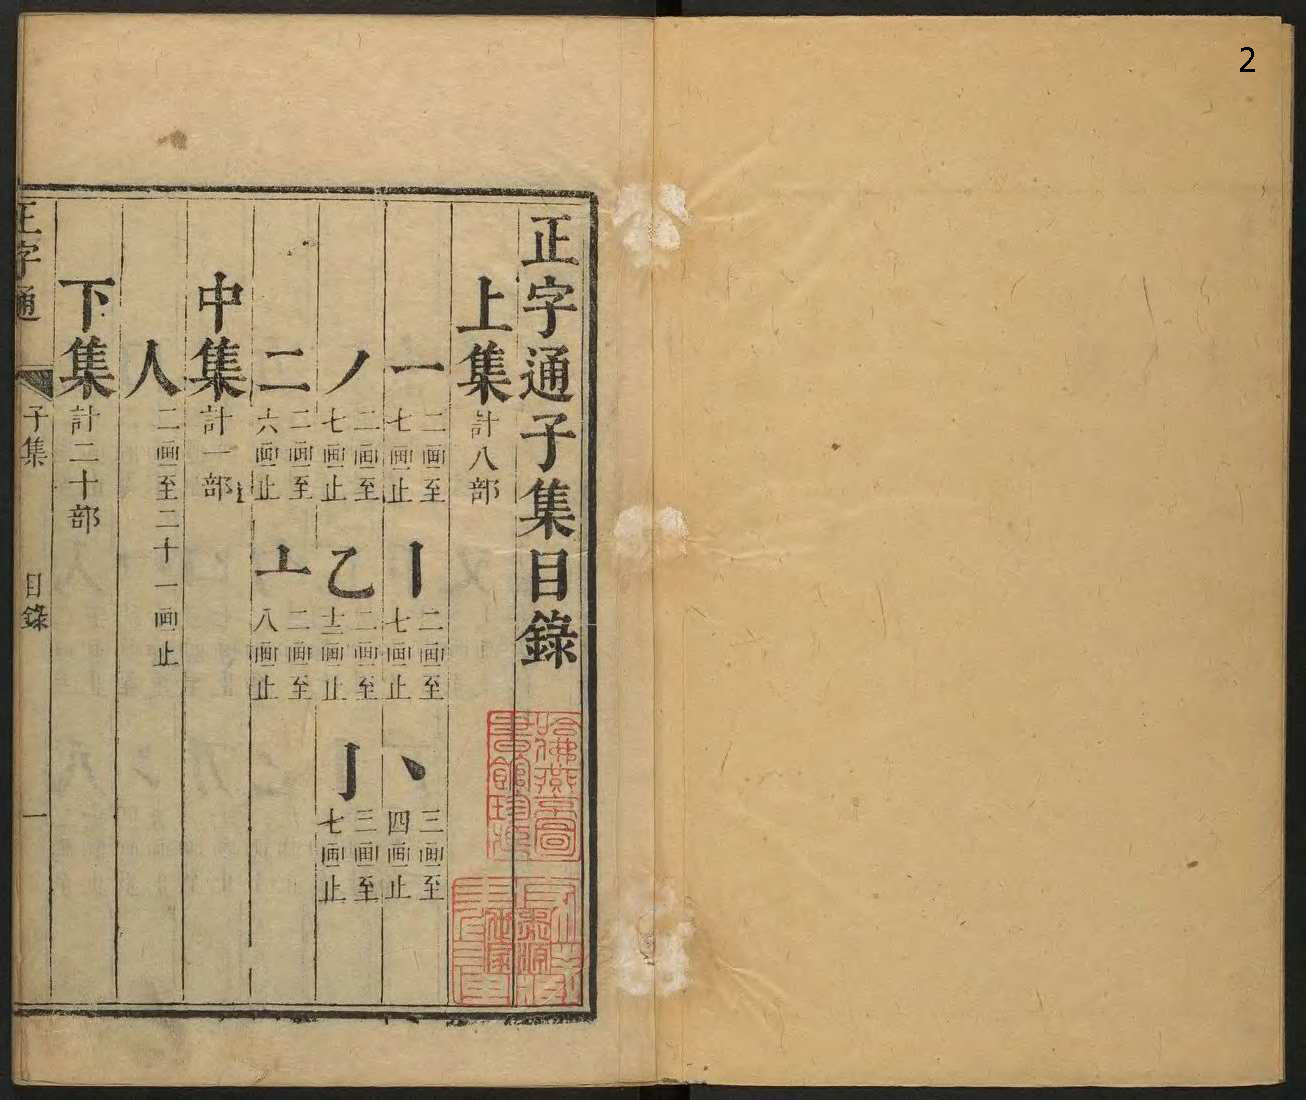 2
正字通子集目錄
上集計八部
一二画至七画止丨二画至七画止丶三画至四画止
丿二画至七画止乙二画至十二画止亅三画至七画止
二二画至六画止亠二画至八画止
中集計一部
人二画至二十一画止
下集計二十部
正字通 子集 目錄 一